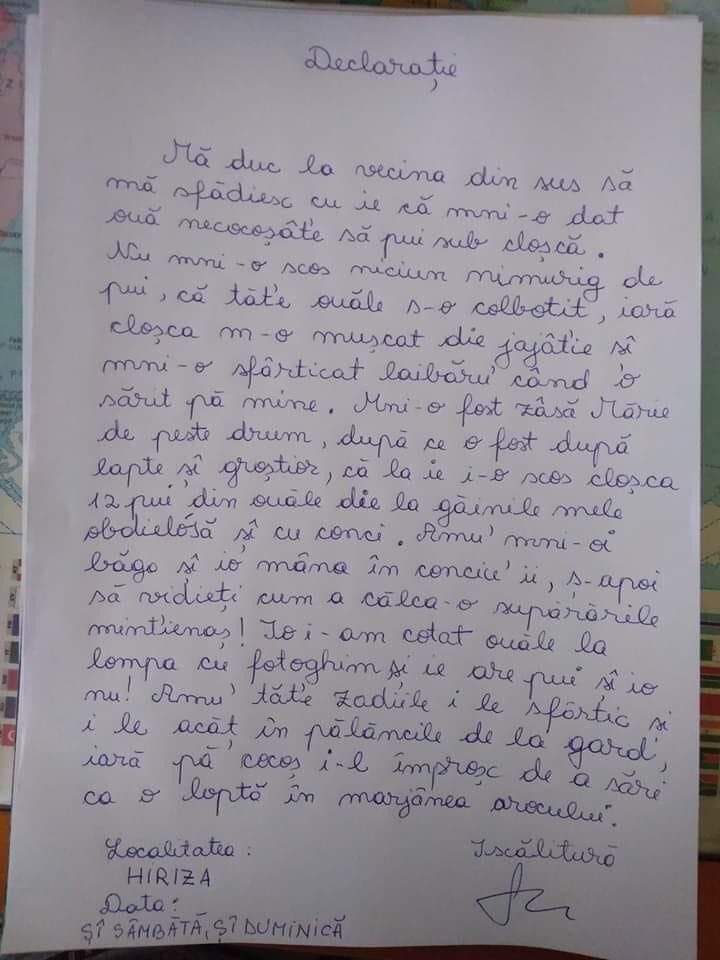 Declarație
Mă duc la vecina din sus să
mă sfădiesc cu ie că mni-o dat
ouă necocoșâte să pui sub cloșcă.
Nu mni-o scos niciun nimurig de
pui, că tăt'e ouăle s-o colbotit, iară
cloșca m-o mușcat die jajâtie sî
mni-o sfârticat laibăru' când o
sărit pă mine. Mni-o fost zâsă Mărie
de peste drum, după ce o fost după
lapte șî groștior, că la ie i-o scos cloșca
12 pui din ouăle die la găinile mele
obdielósă șî cu conci. Amu' mni-oi
băga șî io mâna în conciu' ii, ș-apoi
să vidieți cum a călca-o supărările
mint'ienaș! Io i-am cotat ouăle la
lompa cu fotoghim și ie are pui șî io
nu! Amu' tăt'e zadiile i le sfârtic și
i le acăț în pălăncile de la gard,
iară pă cocoș i-l improșc de a sări
ca o loptă în marjânea arocului.
Localitatea:
HIRIZA
Data:
ȘÎ SÂMBĂTĂ, ȘÎ DUMINICĂ
Iscălitură